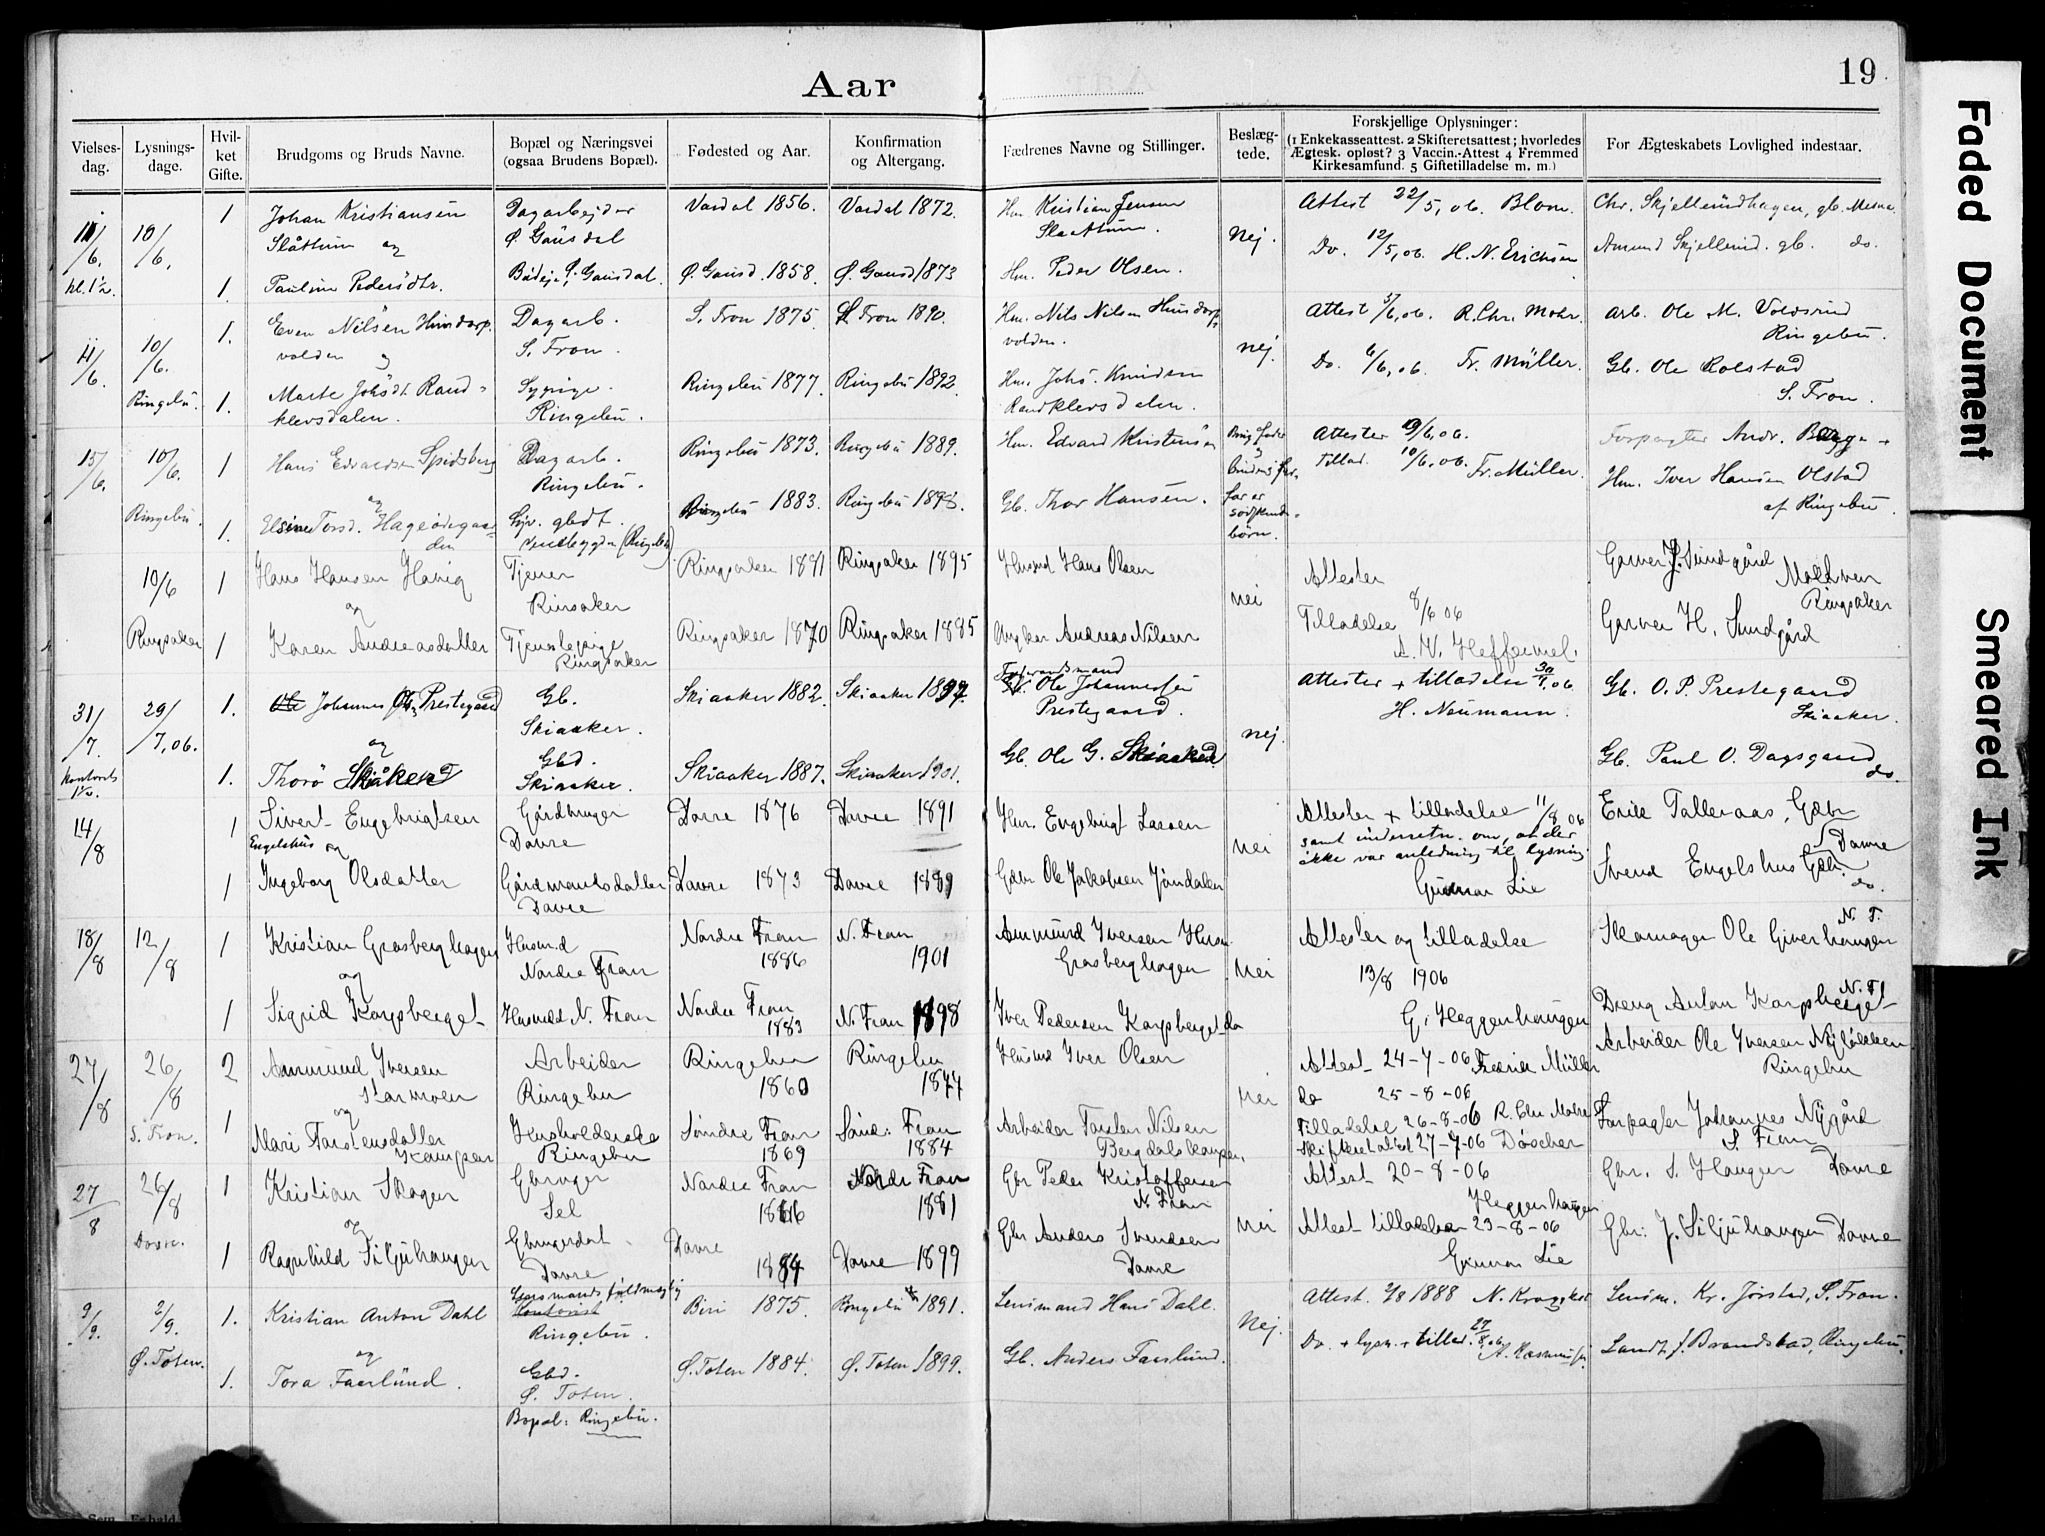 Aar
19
Vielses-dag.
Lysnings-dage.
Hvil-ket Gifte.
Brudgoms og Bruds Navne.
Bopæl og Næringsvei (ogsaa Brudens Bopæl).
Fødested og Aar.
Konfirmation og Altergang.
Fædrenes Navne og Stillinger.
Beslæg-tede.
Forskjellige Oplysninger:
(1 Enkekasseattest. 2 Skifteretsattest; hvorledes
Ægtesk. opløst? 3 Vaccin.-Attest 4 Fremmed
Kirkesamfund. 5 Giftetilladelse m. m.)
For Ægteskabets Lovlighed indestaar.
11/6. kl. 1½. 10/6.
1 Johan Kristiansen Slåttum og Dagarbejder Ø. Gausdal Vardal 1856. Vardal 1872. Hm. Kristian Jensen Slaattum. Nej. Attest 22/5, 06. Blom. Chr. Skjellerudhagen, gb.
1. Pauline Pedersdtr. Budeje, Ø. Gausdal. Ø. Gausd. 1858. Ø. Gausd 1873 Hm. Peder Olsen. Do. 12/5, 06. H. N. Erichsen Amund Skjellerud. gb. do.
11/6. 10/6. Ringebu.
1. Even Nilsen Hundorp volden og Dagarb. S. Fron. S. Fron 1875. S. Fron 1890. Hm. Nils Nilsen Hundorp volden. nej. Attest 5/6, 06. R. Chr. Mohr. Arb. Ole M. Voldsrud Ringebu.
1. Marte Johsdt. Rand-klevsdalen. Sypige. Ringebu. Ringebu 1877. Ringebu 1892. Hm. Johs. Knudsen Randklevsdalen. Do. 6/6, 06. Fr. Müller. Gb. Ole Rolstad S. Fron.
15/6. 10/6. Ringebu.
1 Hans Edvardsen Spidsberg og Dagarb. Ringebu. Ringebu 1873. Ringebu 1889. Hm. Edvard Kristensen Attester 9/6, 06. Tillad. 10/6, 06. Fr. Müller. Forpagter Andr. Bygge +
1. Elsine Torsd. Hageødegaarden Ringebu 1883. Ringebu 1898. Gb. Thor Hansen. far er sødskende-børn. Hm. Iver Hansen Olstad af Ringebu.
10/6 Ringsaker
1 Hans Hansen Havig og Tjener Ringsaker 1895 Husmd Hans Olsen nei Attester Garver J. Sundgård Moelven Ringsaker
1 Karen Andreasdatter Tjenestepige Ringsaker Ringsaker 1870 Ringsaker 1885 Andreas Nilsen Tilladelse 8/6 06 Garver H. Sundgård
31/7. 29/7, 06.
1. Johannes Ols. Prestegaard og Gb. Skiaaker. Skiaaker 1882. Skiaaker 1897. Gb. Ole Johannessen Prestegaard. nej. Attester + tilladelse 06. H. Neumann. Gb. O. P. Prestegaard Skiaaker.
1. Thorø Skiåker Gbd. Skiaaker. Skiaaker 1887. Skiaaker 1901. Gb. Ole G. Skiaaker Gb. Paul O. Dagsgaard do.
14/8
1 Sivert Engebrigtsen Engelshus og Gårdbruger Dovre Dovre 1876 Dovre 1891 Hm. Engebrigt Larsen nei Attester + tilladelse 11/8 06 samt underretn. om, at der ikke var anledning til lysning Gunnar Lie Erik Talleraas, Gbr Dovre
1 Ingeborg Olsdatter Gårdmandsdatter Dovre Dovre 1873 Dovre 1889 Gbr Ole Jakobsen Jøndalen Svend Engelshus Gbr. do.
18/8 12/8
1 Kristian Grosberghagen og Husmd Nordre Fron Nordre Fron 1886 N. Fron 1901 Ammund Iversen Husm Grosberghagen nei Attester og tilladelse 13/8 1906 G. Heggenhaugen Skomager Ole Giverhaugen N. F.
1 Sigrid Korpberget N. Fron Nordre Fron 1883 N. Fron 1898 Iver Pedersen Korpberget do Dreng Anton Korpberget N. F.
27/8 26/8 S. Fron.
2 Ammund Iversen Stormoen og Arbeider Ringebu Ringebu 1860 Ringebu Husmd Iver Olsen nei Attest 24-7-06 Fredrik Müller do 25-8-06 Arbeider Ole Iversen Nyløkken Ringebu
1 Mari Torstensdatter Kampen Husholderske Ringebu Søndre Fron 1869 Sønd: Fron 1884 Arbeider Torsten Nilsen Bergdalskampen. Tilladelse 26-8-06 R. Chr Mohr Skifteretsattest 27-7-06 Døscher Forpagter Johannes Nygård S. Fron
27/8 26/8 Dovre.
1 Kristian Skogen og Gbruger Sel Nordre Fron 1866 Nordre Fron 1881 Gbr Peder Kristoffersen N. Fron nei Attest 20-8-06 Heggenhaugen Gbr. S. Haugen Dovre
1 Ragnhild Siljuhaugen Gbrugerdat. Dovre Dovre 1884 Dovre 1899 Gbr Anders Svendsen Dovre Attest tilladelse 23-8-06 Gunnar Lie Gbr: J. Siljuhaugen Dovre
9/9. 2/9. Ø. Toten.
1. Kristian Anton Dahl og Lensmandsfuldmægtig Kontorist Ringebu. Biri 1875. Ringebu 1891. Lensmand Hans Dahl. Nej. Attest. 1888 Lensm. Kr. Jørstad, S. Fron.
1. Tora Faarlund. Gbd. Ø. Toten. Bopæl: Ringebu. Ø. Toten 1884. Ø. Toten 1899. Gb. Anders Faarlund. Do. + lysn. + tillad. 27/8, 06. Landh. J. Brandstad, Ringebu.
Faded Document
Smeared Ink